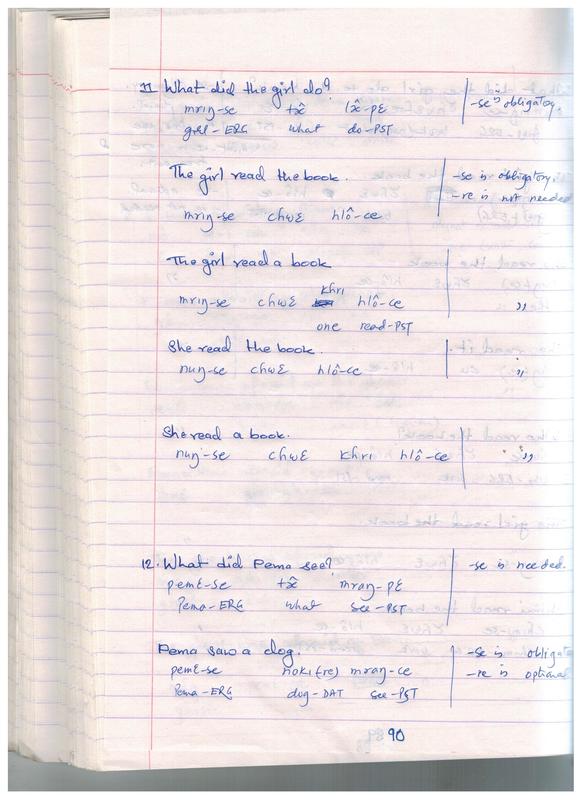 11. What did the girl do?
mrıŋ-se tx̂ lx̂-pɛ -se is obligatory.
girl-ERG what do-PST
The girl read the book. -se is obligatory
mrıŋ-se chwɛ hlô-ce -re is not needed
The girl read a book
mrıŋ-se chwɛ khrı hlô-ce ,,
one read-PST
She read the book.
nuŋ-se chwɛ hlô-ce ,,
She read a book.
nuŋ-se chwɛ khrı hlô-ce ,,
12. What did Pema see? -se is needed.
pemɛ-se tx̂ mraŋ-pɛ
Pema-ERG what see-PST
Pema saw a dog. -se is
pemɛ-se nokı(re) mraŋ-ce -re is optional
Pema-ERG dog-DAT see-PST
90